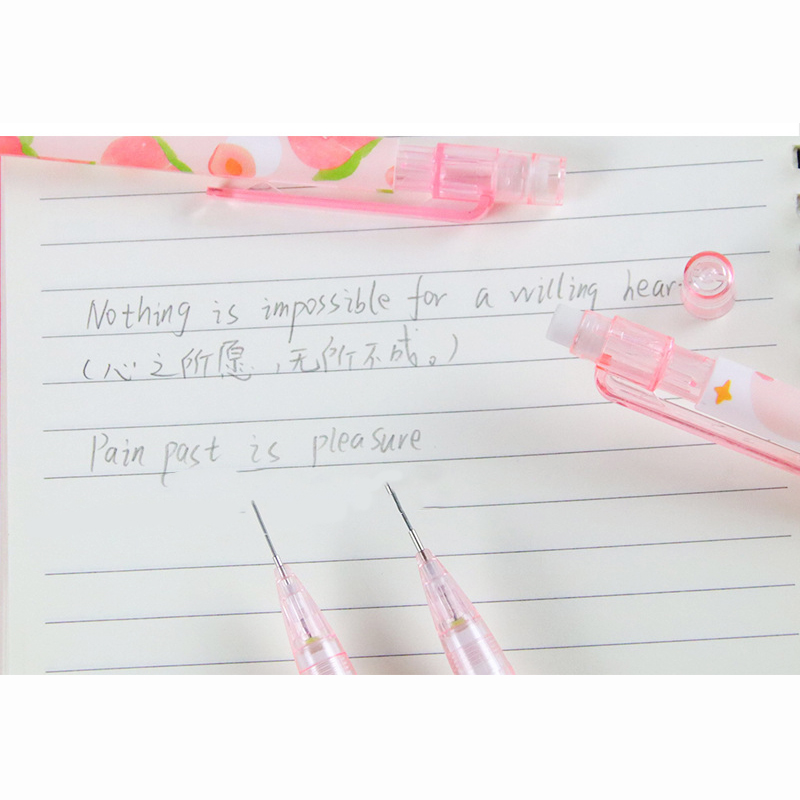 Nothing is impossible for a willing hear.
(心之所愿,无所不成。)
Pain past is pleasure